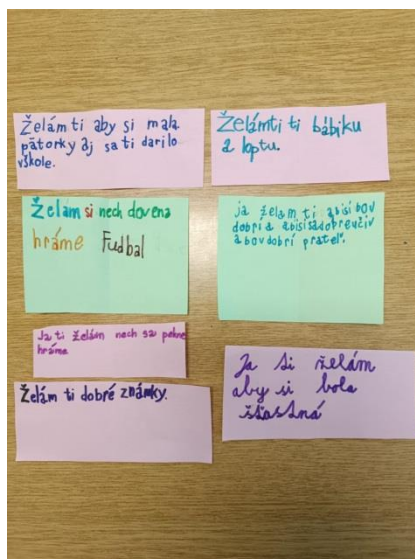 Želám ti aby si mala
pátorky aj sa ti darilo
vškole.
Želámti ti bábiku
a loptu.
Želam si nech dovena
hráme Fudbal
ja želam ti abisi bov
dobri a abisisadobreučiv
a bov dobrí prateľ.
Ja ti želám nech sa pekne
hráme
Želám ti dobré známky.
Ja si želám
aby si bola
šťastná